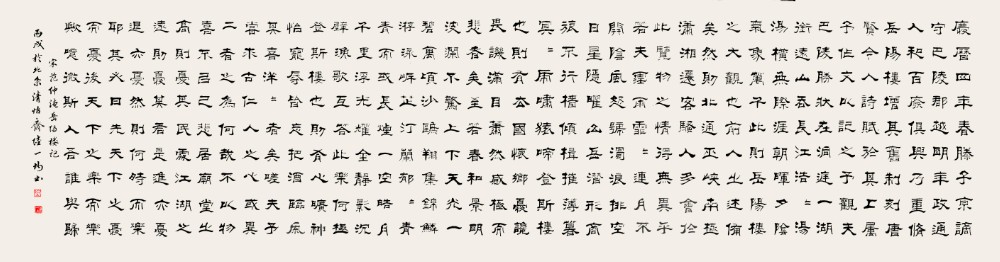 慶曆四年春滕子京謫
守巴陵郡越明年政通
人和百廢俱興乃重修
岳陽樓增其舊制刻唐
賢今人詩賦於其上屬
予作文以記之予觀夫
巴陵勝狀在洞庭一湖
銜遠山吞長江浩浩湯
湯橫無際涯朝暉夕陰
氣象萬千此則岳陽樓
之大觀也前人之述備
矣然則北通巫峽南極
瀟湘遷客騷人多會於
此覽物之情得無異乎
若夫霪雨霏霏連月不
開陰風怒號濁浪排空
日星隱曜山岳潛形商
旅不行檣傾楫摧薄暮
冥冥虎嘯猿啼登斯樓
也則有去國懷鄉憂讒
畏譏滿目蕭然感極而
悲者矣至若春和景明
波瀾不驚上下天光一
碧萬頃沙鷗翔集錦鱗
游泳岸芷汀蘭郁郁青
青而或長煙一空皓月
千里浮光耀金靜影沉
璧漁歌互答此樂何極
登斯樓也則有心曠神
怡寵辱皆忘把酒臨風
其喜洋洋者矣嗟夫予
嘗求古仁人之心或異
二者之為何哉不以物
喜不以己悲居廟堂之
高則憂其民處江湖之
遠則憂其君是進亦憂
退亦憂然則何時而樂
耶其必曰先天下之憂
而憂後天下之樂而樂
歟噫微斯人吾誰與歸
宋范仲淹岳陽樓記
丙戌於北京清怡齋